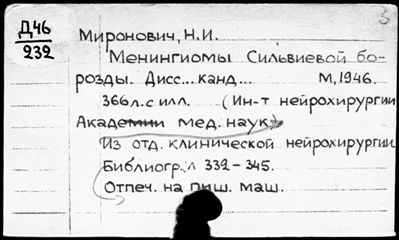 Д46
232
Миронович, Н.И.
Менингиомы Сильвиевой бо-
розды. Дисс... канд... М, 1946.
366л. с илл. (Ин-т нейрохирургии
Академии мед. наук)
Из отд. клинической нейрохирургии
Библиогр. л 332-345.
Отпеч. на пиш. маш.